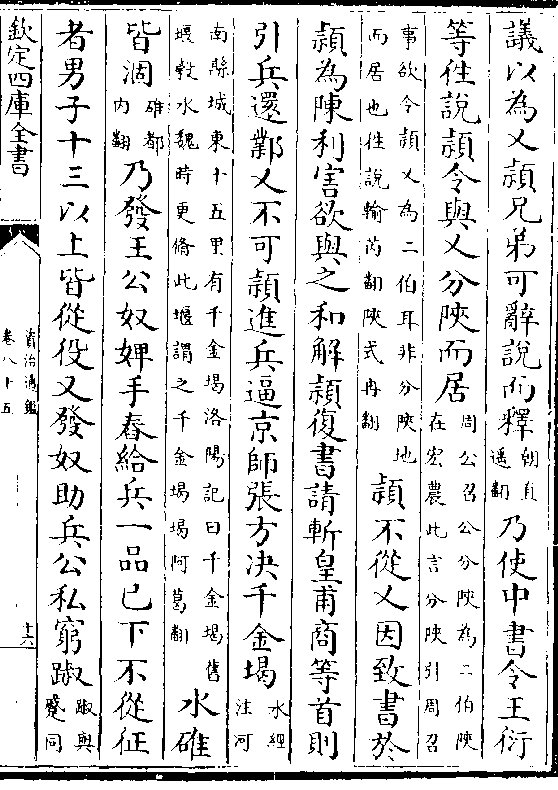 議以為乂穎兄弟可辭說而釋朝直遥翻乃使中書令王衍
等往說穎令與乂分陜而居周公召公分陜為二伯陜在宏農此言分陜引周召
事欲令穎乂為二伯耳非分陜地而居也往說輸芮翻陜式冉翻穎不從乂因致書於
穎為陳利害欲與之和解穎復書請斬皇甫商等首則
引兵還鄴乂不可穎進兵逼京師張方决千金堨水經注河
南縣城東十五里有千金堨洛陽記曰千金堨舊堰穀水魏時更脩此堰謂之千金堨堨阿葛翻水碓
皆涸碓都内翻乃發王公奴婢手舂給兵一品已下不從征
者男子十三以上皆從役又發奴助兵公私窮踧踧與蹙同
欽定四庫全書
資治通鑑
卷八十五
十六